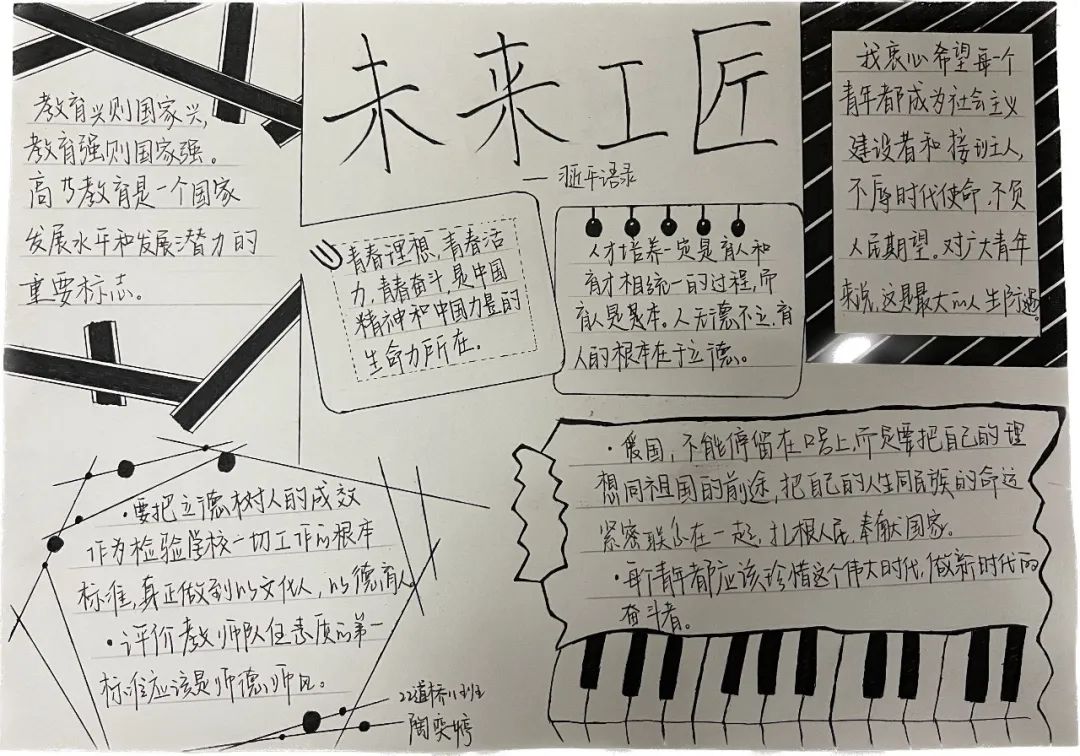 未来工匠
教育兴则国家兴,
教育强则国家强。
高等教育是一个国家
发展水平和发展潜力的
重要标志。
青春理想,青春活
力,青春奋斗,是中国
精神和中国力量的
生命力所在。
人才培养一定是育人和
育才相统一的过程,而
育人是基本。人无德不立,育
人的根本在于立德。
我衷心希望每一个
青年都成为社会主义
建设者和接班人,
不辱时代使命,不负
人民期望。对广大青年
来说,这是最大的人生际遇。
·要把立德树人的成效
作为检验学校一切工作的根本
标准,真正做到以文化人,以德育人
·评价教师队伍素质的第一
标准应该是师德师风。
22道桥
陶奕婷
·爱国,不能停留在口号上,而是要把自己的理
想同祖国的前途,把自己的人生同民族的命运
紧密联系在一起,扎根人民,奉献国家。
·每个青年都应该珍惜这个伟大时代,做新时代的
奋斗者。